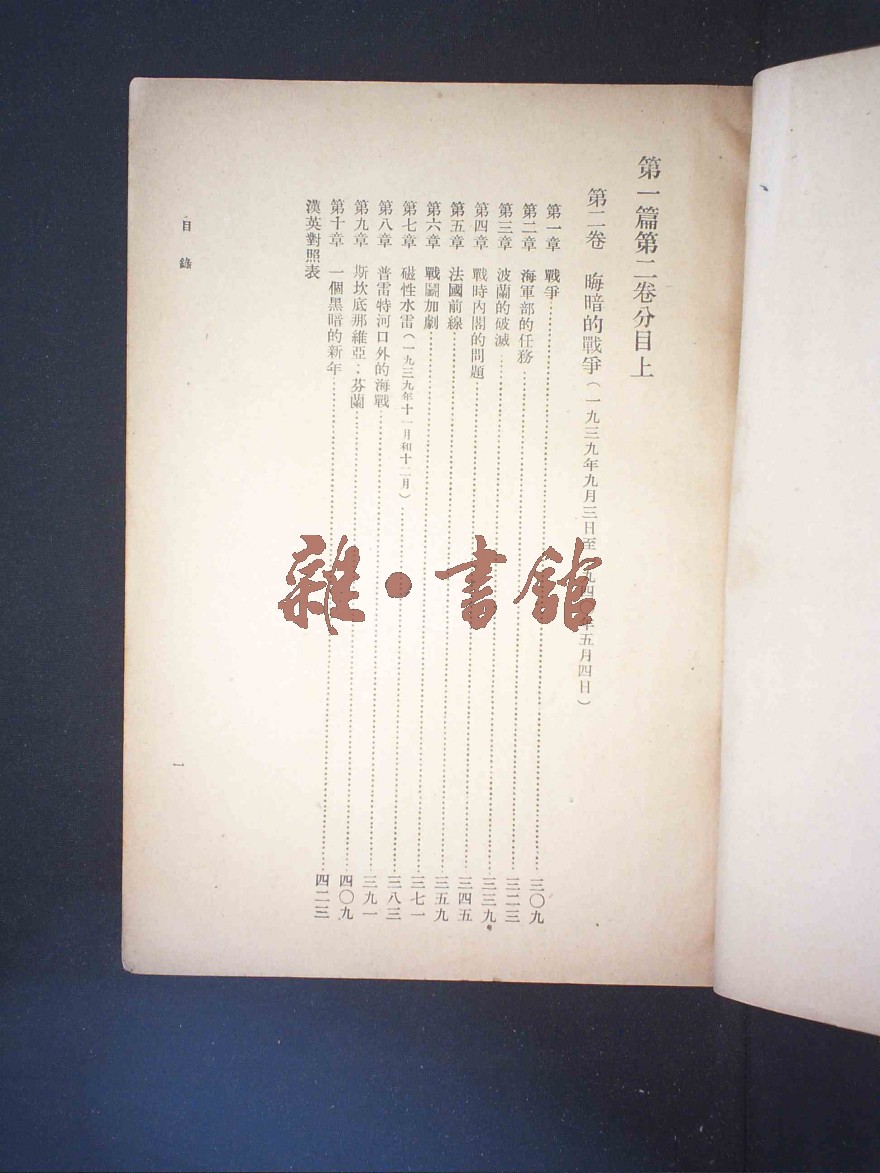 第一篇第二卷分目上
第二卷 晦暗的戰爭(一九三九年九月三日至九四年五月四日)
第一章 戰爭……三〇九
第二章 海軍部的任務……三二三
第三章 波蘭的破滅……三三九
第四章 戰時內閣的問題……三四五
第五章 法國前線……三五九
第六章 戰鬭加劇……三七一
第七章 磁性水雷(一九三九年十一月和十二月)……三八三
第八章 普雷特河口外的海戰……三九一
第九章 斯坎底那維亞:芬蘭……四〇九
第十章 一個黑暗的新年……四二三
漢英對照表
目錄
一
雜·書館